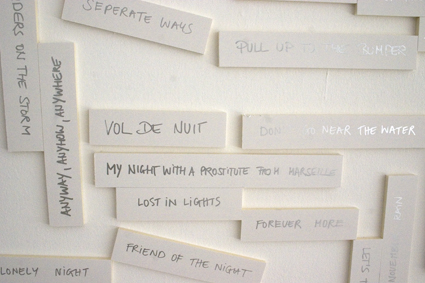 SEPERATE WAYS
DERS ON THE STORM
PULL UP TO THE BUMPER
ANYWAY, ANYHOW, ANYWHERE
VOL DE NUIT
DON'T GO NEAR THE WATER
MY NIGHT WITH A PROSTITUTE FROM MARSEILLE
LOST IN LIGHTS
FOREVER MORE
FRIEND OF THE NIGHT
LONELY NIGHT
LET'S
NOVEMBER RAIN